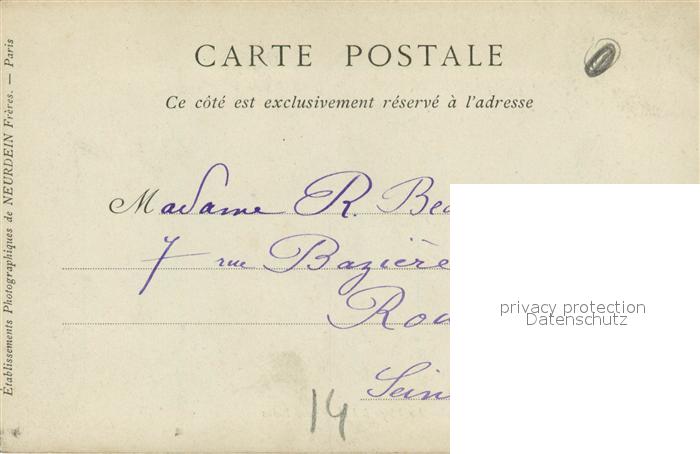 Établissements Photographiques de NEURDEIN Frères. — Paris
CARTE POSTALE
Ce côté est exclusivement réservé à l'adresse
Madame R. Bea
7 rue Bazière
privacy protection
Datenschutz
Rou
Sein
14